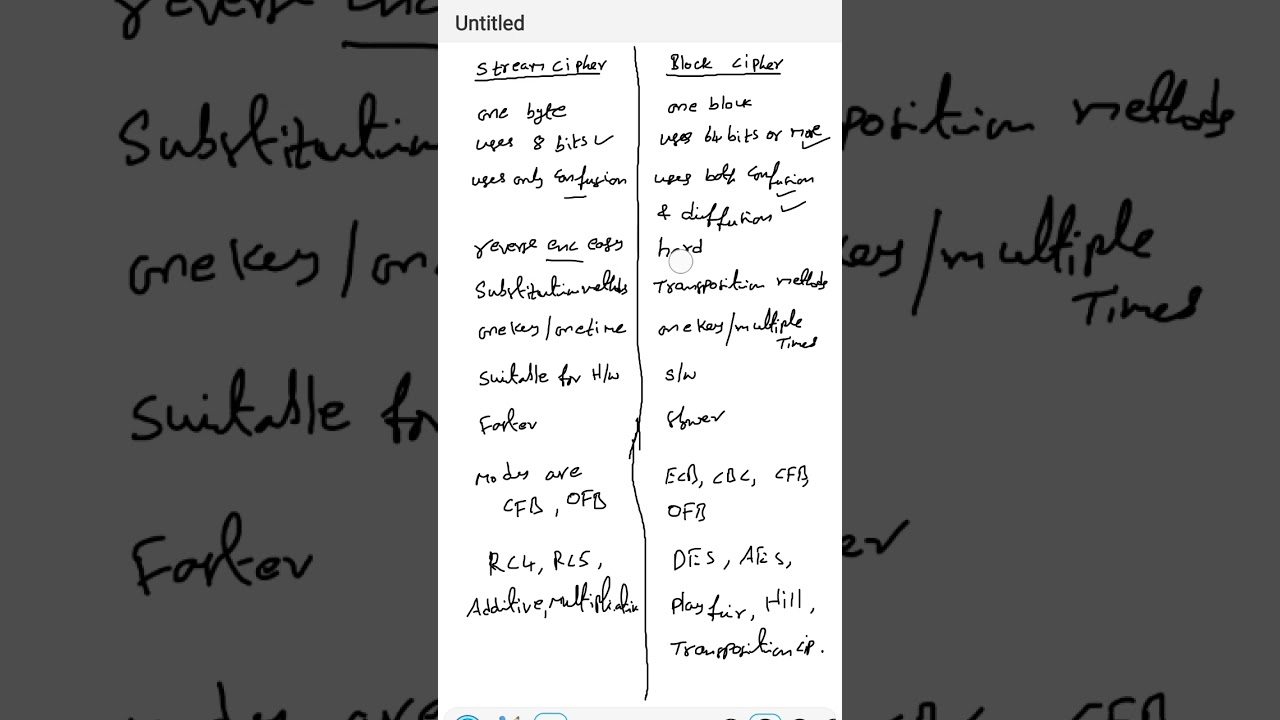 Untitled
Stream Cipher
Block Cipher
one byte
one block
uses 8 bits ✓
uses 64 bits or more
uses only confusion
uses both confusion
& diffusion
reverse enc easy
hard
Substitution methods
Transposition methods
one key/onetime
one key/multiple
Times
Suitable for H/w
S/w
Faster
Slower
Modes are
CFB, OFB
ECB, CBC, CFB,
OFB
RC4, RC5,
DES, AES,
Additive, Multiplicative
Playfair, Hill,
Transposition cip.